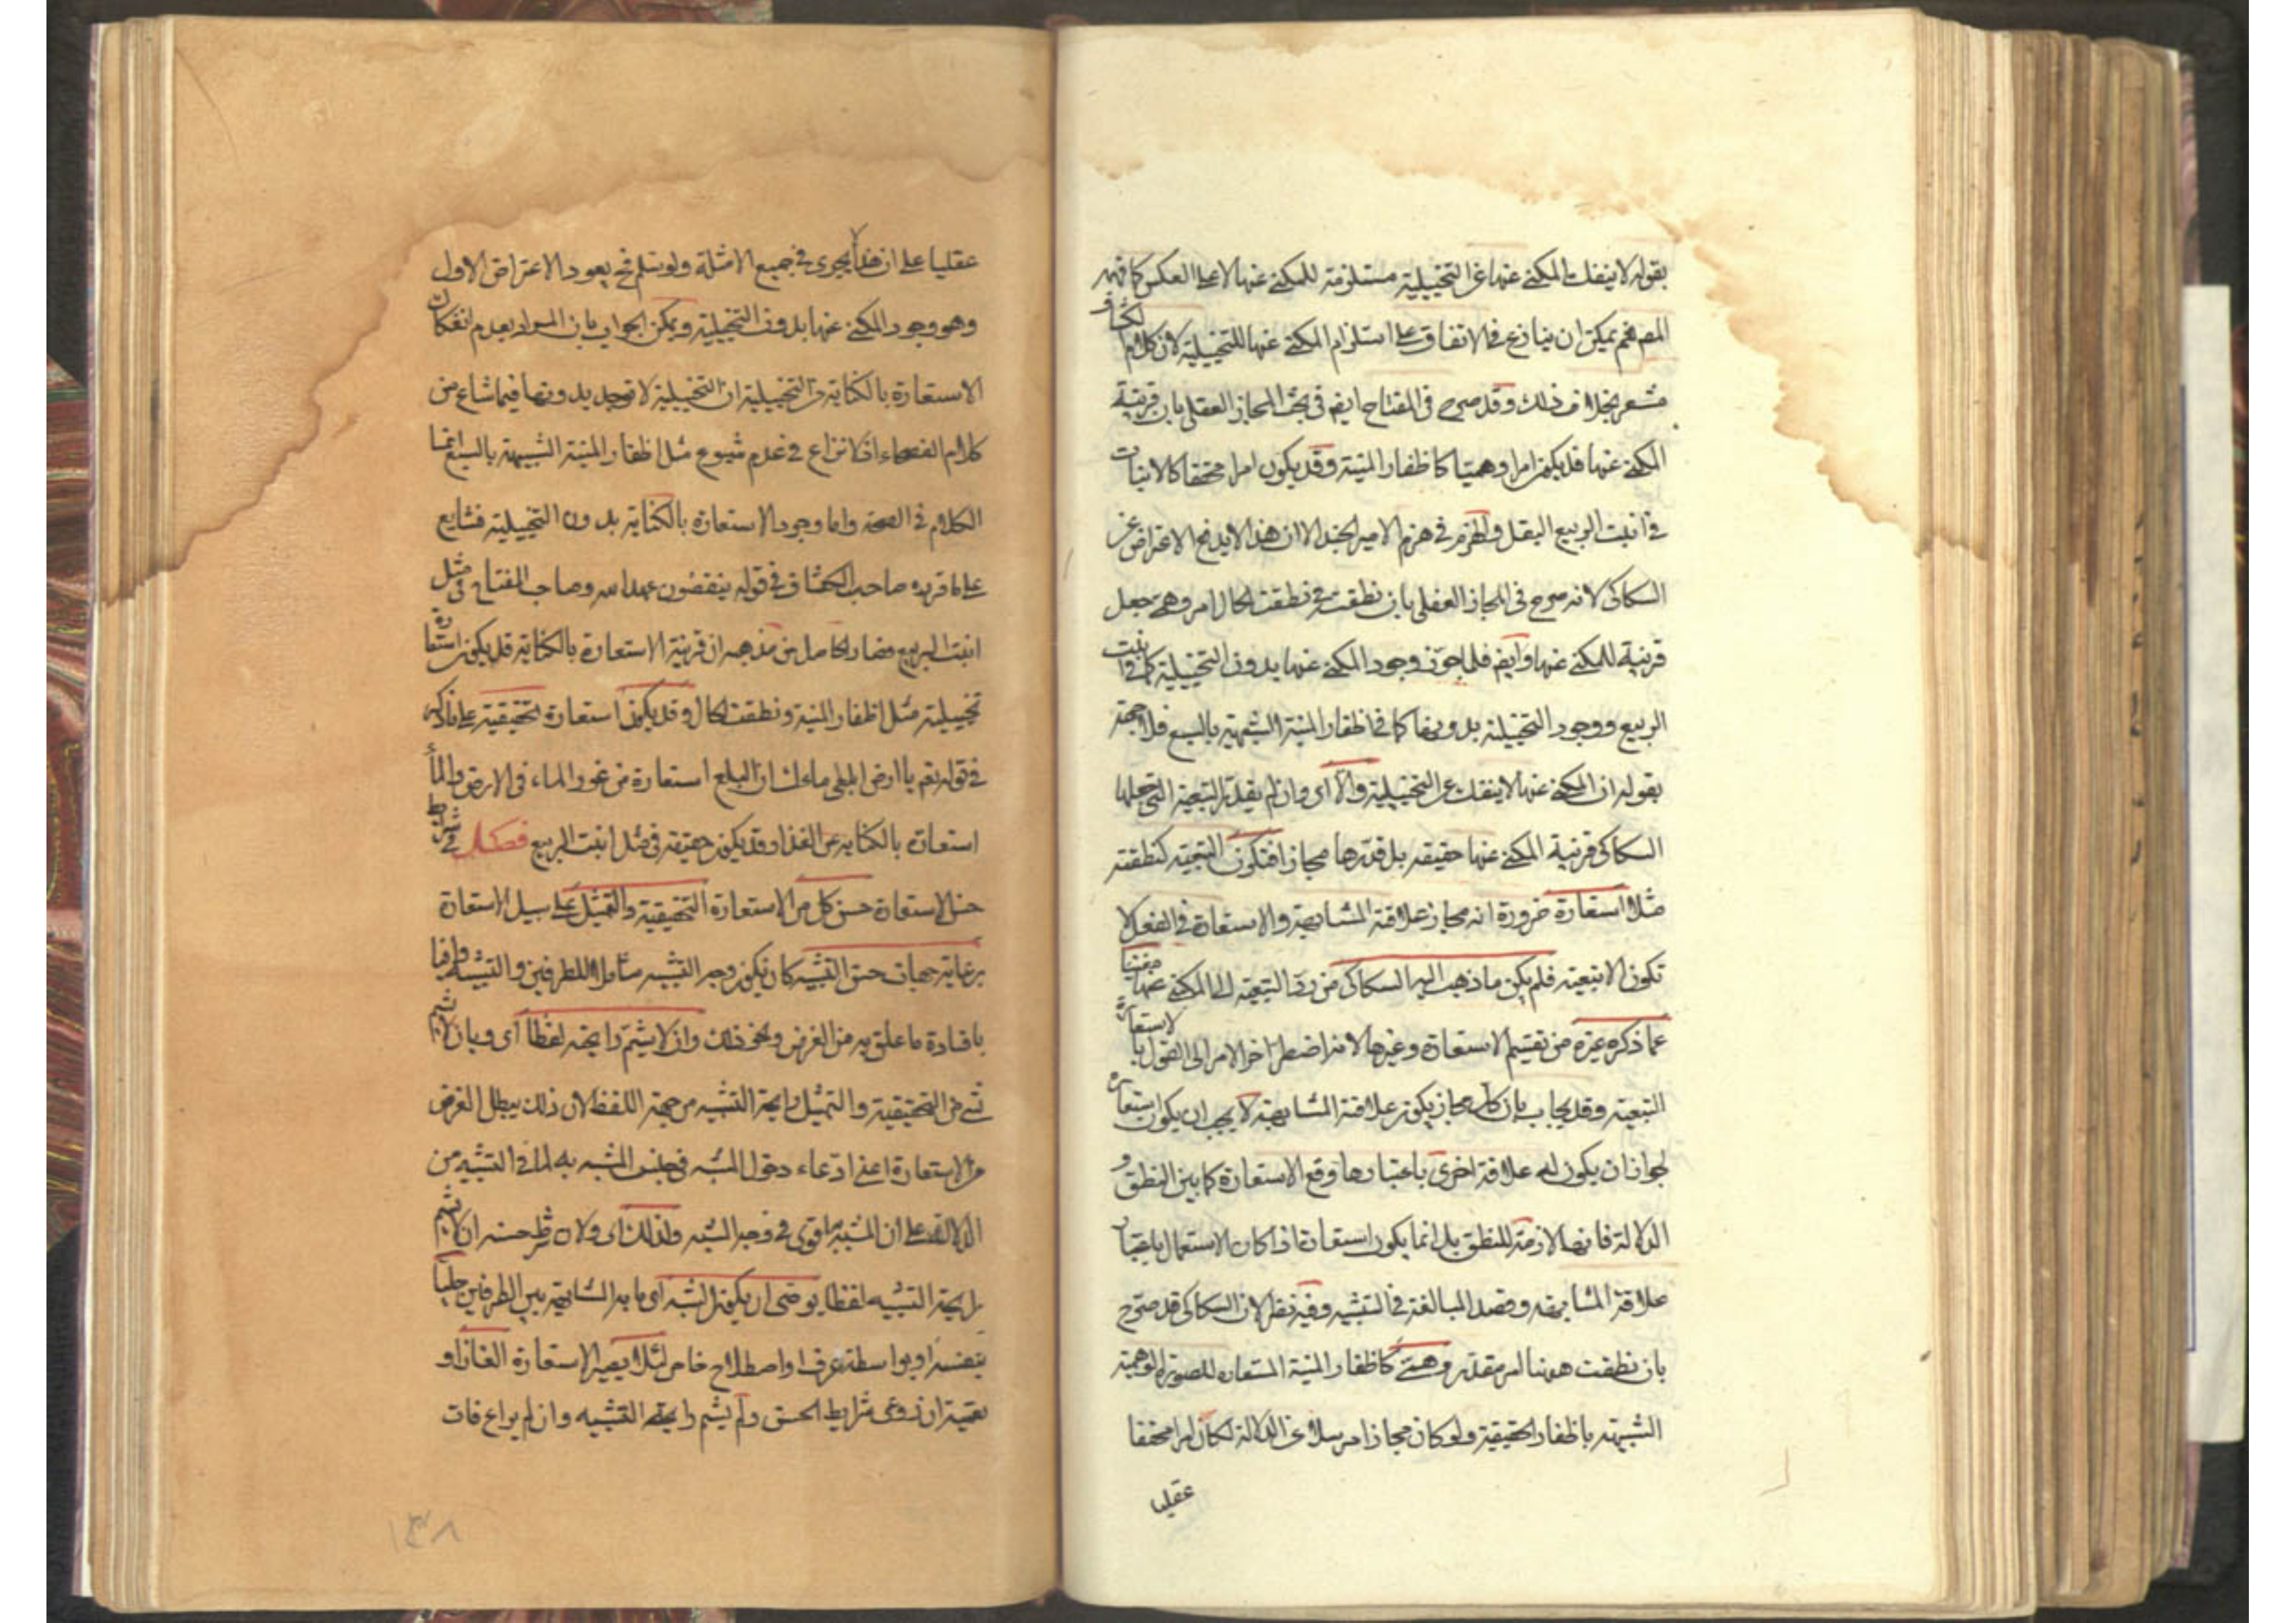 بقوله لا ينفك المكنى عنها عن التخييلية مستلزمة للمكنى عنها لا على العكس كما فهمه
المص نعم يمكن ان ينازع في الاتفاق على استلزام المكنى عنها للتخييلية لان كلام الكشاف
مشعر بخلاف ذلك وقد صرح في المفتاح ايضا في بحث المجاز العقلي بان قرينة
المكنى عنها قد يكون امرا وهميا كاظفار المنية وقد يكون امرا محققا كالانبات
في انبت الربيع البقل والهزم في هزم الامير الجند الا ان هذا لا يدفع الاعتراض عن
السكاكى لانه صرح في المجاز العقلي بان نطقت في نطقت الحال امر وهمي جعل
قرينة للمكنى عنها وايضا فلما جوز وجود المكنى عنها بدون التخييلية كما في انبت
الربيع ووجود التخييلية بدونها كما في اظفار المنية الشبيهة بالسبع فلا جهة
بقوله ان المكنى عنها لا ينفك عن التخييلية والا اى وان لم يقدر التبعية التى جعلها
السكاكى قرينة المكنى عنها حقيقة بل قدرها مجازا فتكون التبعية كنطقت
مثلا استعارة ضرورة انه مجاز علاقته المشابهة والاستعارة في الفعل لا
تكون الا تبعية فلم يكن ما ذهب اليه السكاكى من رد التبعية الى المكنى عنها مغنيا
عما ذكره غيره من تقسيم الاستعارة وغيرها لانه اضطر اخر الامر الى القول بالاستعارة
التبعية وقد يجاب بان كل مجاز يكون علاقته المشابهة لا يجب ان يكون استعارة
لجواز ان يكون له علاقة اخرى باعتبارها وقع الاستعارة كما بين النطق و
الدلالة فانها لازمة للنطق بل انما يكون استعارة اذا كان الاستعمال باعتبار
علاقة المشابهة وقصد المبالغة في التشبيه وفيه نظر لان السكاكى قد صرح
بان نطقت ههنا امر مقدر وهمى كاظفار المنية المستعارة للصورة الوهمية
الشبيهة باظفار الحقيقية ولو كان مجازا مرسلا عن الدلالة لكان امرا محققا
عقليا
عقليا على ان هذا لا يجرى في جميع الامثلة ولو سلم فح يعود الاعتراض الاول
وهو وجود المكنى عنها بدون التخييلية ويمكن الجواب بان المراد بعدم انفكاك
الاستعارة بالكناية عن التخييلية ان التخييلية لا توجد بدونها فيما شاع من
كلام الفصحاء اذ لا نزاع في عدم شيوع مثل اظفار المنية الشبيهة بالسبع انما
الكلام في الصحة واما وجود الاستعارة بالكناية بدون التخييلية فشايع
على ما قرره صاحب الكشاف في قوله ينقضون عهد الله وصاحب المفتاح في مثل
انبت الربيع فصار الحاصل من مذهبه ان قرينة الاستعارة بالكناية قد يكون استعارة
تخييلية مثل اظفار المنية ونطقت الحال وقد يكون استعارة تحقيقية على ما ذكر
في قوله تعم يا ارض ابلعى ماءك ان البلع استعارة من غور الماء في الارض والماء
استعارة بالكناية عن الغذاء وقد يكون حقيقة في مثل انبت الربيع فصل في شرائط
حسن الاستعارة حسن كل من الاستعارة التحقيقية والتمثيل على سبيل الاستعارة
برعاية جهات حسن التشبيه كان يكون وجه التشبيه شاملا للطرفين والتشبيه وافيا
بافادة ما علق به من الغرض ونحو ذلك وان لا يشم رايحته لفظا اى وبان لا يشم
شئ من التحقيقية والتمثيل رايحة التشبيه من جهة اللفظ لان ذلك يبطل الغرض
من الاستعارة اعنى ادعاء دخول المشبه في جنس المشبه به لما في التشبيه من
الدلالة على ان المشبه به اقوى في وجه الشبه ولذلك اى ولان شرط حسنه ان لا يشم
رايحة التشبيه لفظا يوصى ان يكون الشبه اى ما به المشابهة بين الطرفين جليا
بنفسه او بواسطة عرف او اصطلاح خاص لئلا يصير الاستعارة الغازا و
تعمية ان روعى شرايط الحسن ولم يشم رايحة التشبيه وان لم يراع فات
١٣٨